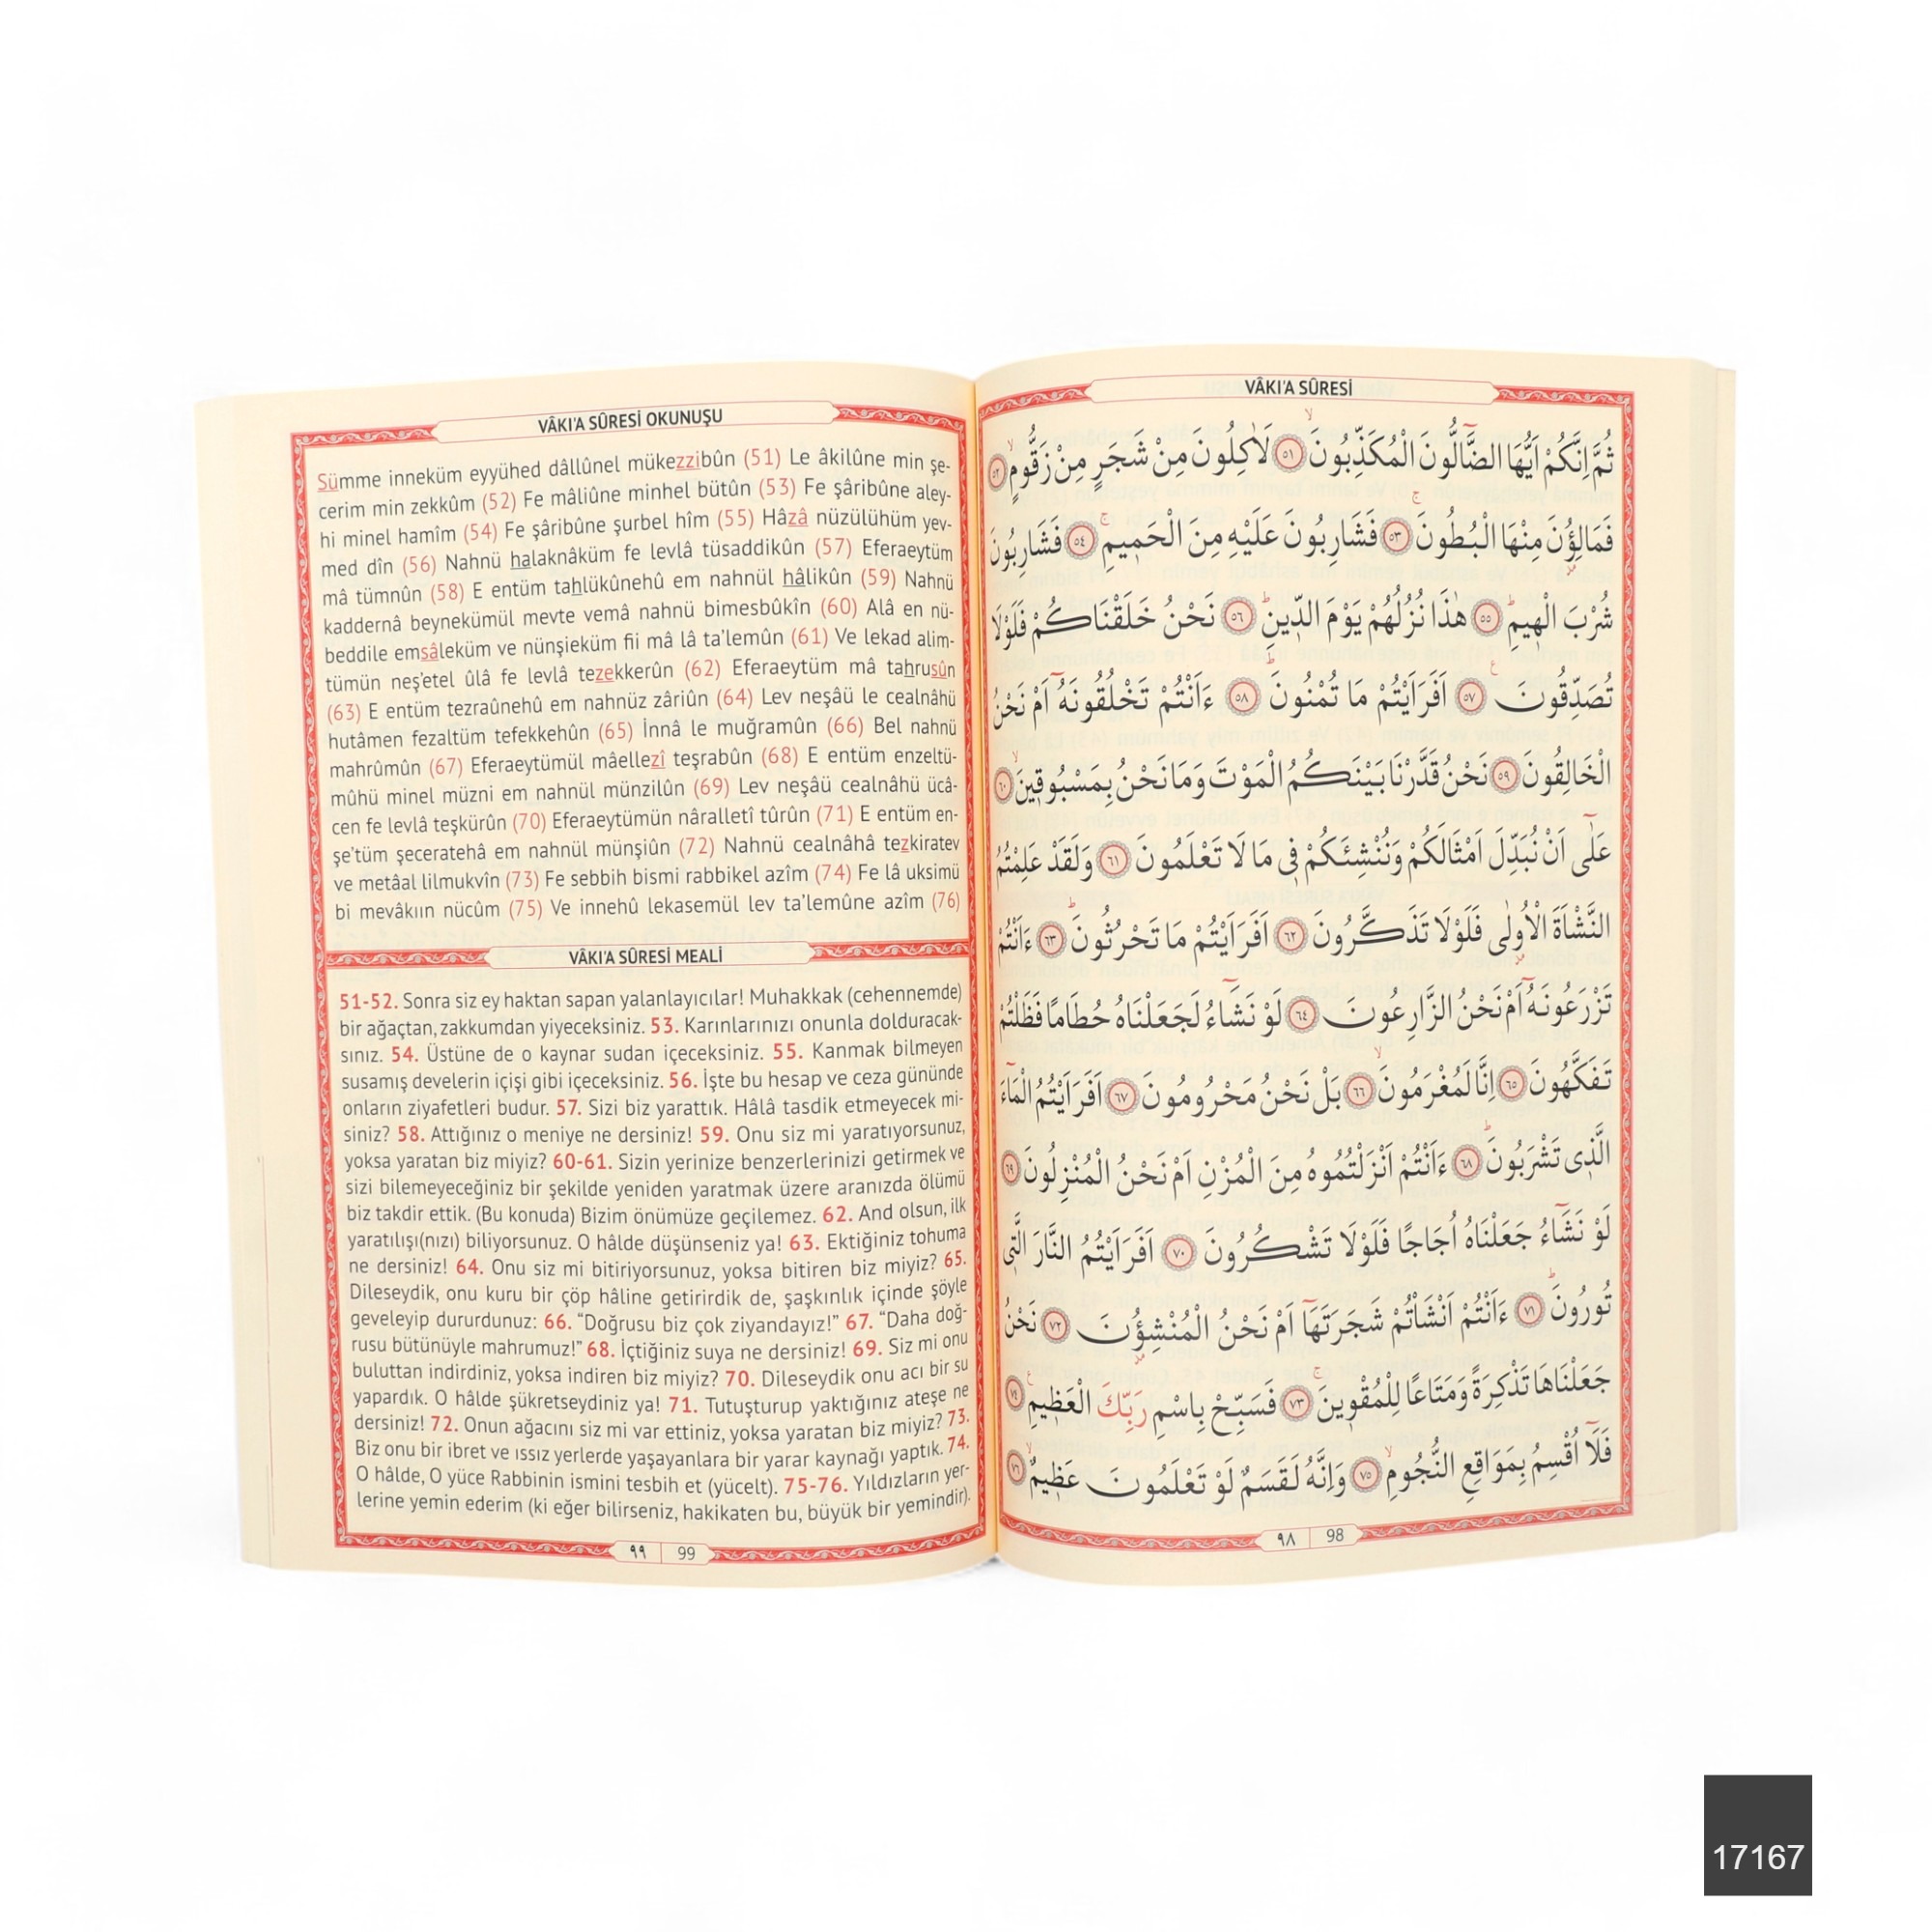 VÂKI'A SÛRESİ
ثُمَّ اِنَّكُمْ اَيُّهَا الضَّٓالُّونَ الْمُكَذِّبُونَۙ ﴿٥١﴾ لَاٰكِلُونَ مِنْ شَجَرٍ مِنْ زَقُّومٍۙ ﴿٥٢﴾
فَمَالِؤُ۫نَ مِنْهَا الْبُطُونَۚ ﴿٥٣﴾ فَشَارِبُونَ عَلَيْهِ مِنَ الْحَم۪يمِۚ ﴿٥٤﴾ فَشَارِبُونَ
شُرْبَ الْه۪يمِۜ ﴿٥٥﴾ هٰذَا نُزُلُهُمْ يَوْمَ الدّ۪ينِۜ ﴿٥٦﴾ نَحْنُ خَلَقْنَاكُمْ فَلَوْلَا
تُصَدِّقُونَ ﴿٥٧﴾ اَفَرَاَيْتُمْ مَا تُمْنُونَۜ ﴿٥٨﴾ ءَاَنْتُمْ تَخْلُقُونَهُٓ اَمْ نَحْنُ
الْخَالِقُونَ ﴿٥٩﴾ نَحْنُ قَدَّرْنَا بَيْنَكُمُ الْمَوْتَ وَمَا نَحْنُ بِمَسْبُوق۪ينَۙ ﴿٦٠﴾
عَلٰٓى اَنْ نُبَدِّلَ اَمْثَالَكُمْ وَنُنْشِئَكُمْ ف۪ي مَا لَا تَعْلَمُونَ ﴿٦١﴾ وَلَقَدْ عَلِمْتُمُ
النَّشْاَةَ الْاُو۫لٰى فَلَوْلَا تَذَكَّرُونَ ﴿٦٢﴾ اَفَرَاَيْتُمْ مَا تَحْرُثُونَۜ ﴿٦٣﴾ ءَاَنْتُمْ
تَزْرَعُونَهُٓ اَمْ نَحْنُ الزَّارِعُونَ ﴿٦٤﴾ لَوْ نَشَٓاءُ لَجَعَلْنَاهُ حُطَامًا فَظَلْتُمْ
تَفَكَّهُونَ ﴿٦٥﴾ اِنَّا لَمُغْرَمُونَۙ ﴿٦٦﴾ بَلْ نَحْنُ مَحْرُومُونَ ﴿٦٧﴾ اَفَرَاَيْتُمُ الْمَٓاءَ
الَّذ۪ي تَشْرَبُونَۜ ﴿٦٨﴾ ءَاَنْتُمْ اَنْزَلْتُمُوهُ مِنَ الْمُزْنِ اَمْ نَحْنُ الْمُنْزِلُونَ ﴿٦٩﴾
لَوْ نَشَٓاءُ جَعَلْنَاهُ اُجَاجًا فَلَوْلَا تَشْكُرُونَ ﴿٧٠﴾ اَفَرَاَيْتُمُ النَّارَ الَّت۪ي
تُورُونَۜ ﴿٧١﴾ ءَاَنْتُمْ اَنْشَاْتُمْ شَجَرَتَهَٓا اَمْ نَحْنُ الْمُنْشِؤُ۫نَ ﴿٧٢﴾ نَحْنُ
جَعَلْنَاهَا تَذْكِرَةً وَمَتَاعًا لِلْمُقْو۪ينَۚ ﴿٧٣﴾ فَسَبِّحْ بِاسْمِ رَبِّكَ الْعَظ۪يمِ ﴿٧٤﴾
فَلَٓا اُقْسِمُ بِمَوَاقِعِ النُّجُومِۙ ﴿٧٥﴾ وَاِنَّهُ لَقَسَمٌ لَوْ تَعْلَمُونَ عَظ۪يمٌۙ ﴿٧٦﴾
٩٨ 98
VÂKI'A SÛRESİ OKUNUŞU
Sümme inneküm eyyühed dâllûnel mükezzibûn (51) Le âkilûne min şe-
cerim min zekkûm (52) Fe mâliûne minhel bütûn (53) Fe şâribûne aley-
hi minel hamîm (54) Fe şâribûne şurbel hîm (55) Hâzâ nüzülühüm yev-
med dîn (56) Nahnü halaknâküm fe levlâ tüsaddikûn (57) Eferaeytüm
mâ tümnûn (58) E entüm tahlükûnehû em nahnül hâlikûn (59) Nahnü
kaddernâ beynekümül mevte vemâ nahnü bimesbûkîn (60) Alâ en nü-
beddile emsâleküm ve nünşieküm fii mâ lâ ta'lemûn (61) Ve lekad alim-
tümün neş'etel ûlâ fe levlâ tezekkerûn (62) Eferaeytüm mâ tahrusûn
(63) E entüm tezraûnehû em nahnüz zâriûn (64) Lev neşâü le cealnâhü
hutâmen fezaltüm tefekkehûn (65) İnnâ le muğramûn (66) Bel nahnü
mahrûmûn (67) Eferaeytümül mâellezî teşrabûn (68) E entüm enzeltü-
mûhü minel müzni em nahnül münzilûn (69) Lev neşâü cealnâhü ücâ-
cen fe levlâ teşkürûn (70) Eferaeytümün nâralletî tûrûn (71) E entüm en-
şe'tüm şeceratehâ em nahnül münşiûn (72) Nahnü cealnâhâ tezkiratev
ve metâal lilmukvîn (73) Fe sebbih bismi rabbikel azîm (74) Fe lâ uksimü
bi mevâkıın nücûm (75) Ve innehû lekasemül lev ta'lemûne azîm (76)
VÂKI'A SÛRESİ MEALİ
51-52. Sonra siz ey haktan sapan yalanlayıcılar! Muhakkak (cehennemde)
bir ağaçtan, zakkumdan yiyeceksiniz. 53. Karınlarınızı onunla dolduracak-
sınız. 54. Üstüne de o kaynar sudan içeceksiniz. 55. Kanmak bilmeyen
susamış develerin içişi gibi içeceksiniz. 56. İşte bu hesap ve ceza gününde
onların ziyafetleri budur. 57. Sizi biz yarattık. Hâlâ tasdik etmeyecek mi-
siniz? 58. Attığınız o meniye ne dersiniz! 59. Onu siz mi yaratıyorsunuz,
yoksa yaratan biz miyiz? 60-61. Sizin yerinize benzerlerinizi getirmek ve
sizi bilemeyeceğiniz bir şekilde yeniden yaratmak üzere aranızda ölümü
biz takdir ettik. (Bu konuda) Bizim önümüze geçilemez. 62. And olsun, ilk
yaratılışı(nızı) biliyorsunuz. O hâlde düşünseniz ya! 63. Ektiğiniz tohuma
ne dersiniz! 64. Onu siz mi bitiriyorsunuz, yoksa bitiren biz miyiz? 65.
Dileseydik, onu kuru bir çöp hâline getirirdik de, şaşkınlık içinde şöyle
geveleyip dururdunuz: 66. “Doğrusu biz çok ziyandayız!” 67. “Daha doğ-
rusu bütünüyle mahrumuz!” 68. İçtiğiniz suya ne dersiniz! 69. Siz mi onu
buluttan indirdiniz, yoksa indiren biz miyiz? 70. Dileseydik onu acı bir su
yapardık. O hâlde şükretseydiniz ya! 71. Tutuşturup yaktığınız ateşe ne
dersiniz! 72. Onun ağacını siz mi var ettiniz, yoksa yaratan biz miyiz? 73.
Biz onu bir ibret ve ıssız yerlerde yaşayanlara bir yarar kaynağı yaptık. 74.
O hâlde, O yüce Rabbinin ismini tesbih et (yücelt). 75-76. Yıldızların yer-
lerine yemin ederim (ki eğer bilirseniz, hakikaten bu, büyük bir yemindir).
٩٩ 99
17167